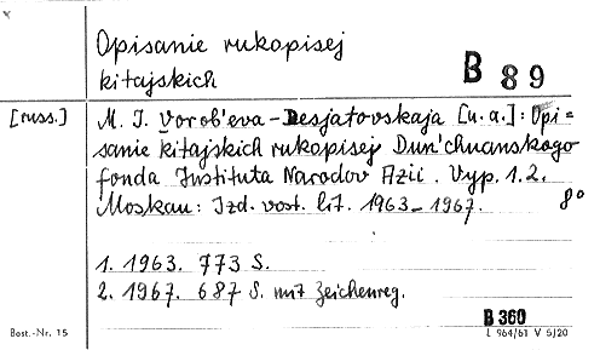 Opisanie rukopisej
kitajskich
B 89
[russ.] M. I. Vorob'eva-Desjatovskaja [u.a.]: Opi=
sanie kitajskich rukopisej Dun'chuanskogo
fonda Instituta Narodov Azii. Vyp. 1.2.
Moskau: Izd. vost. lit. 1963-1967. 8°
1. 1963. 773 S.
2. 1967. 687 S. mit Zeichenreg.
B 360
Best.-Nr. 15 L 964/61 V 5/20